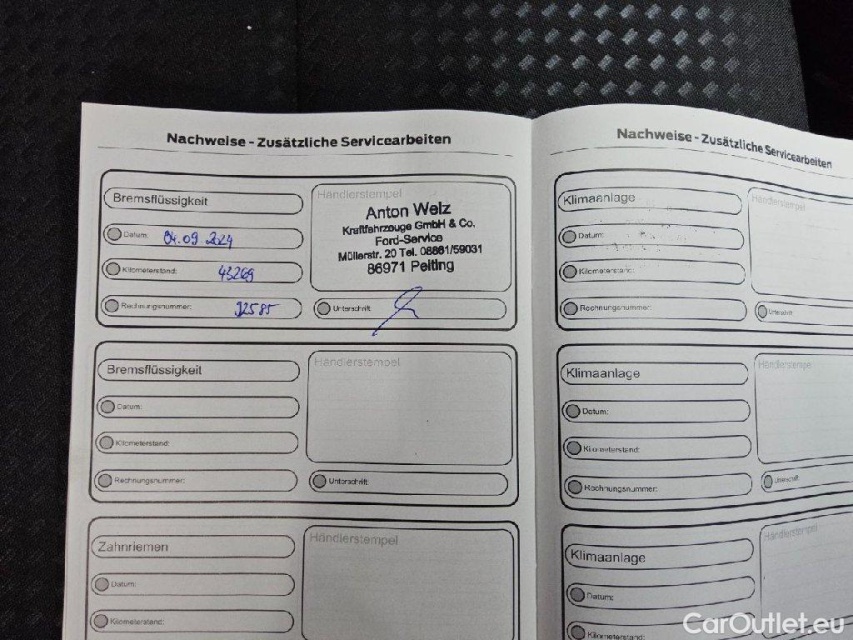 Nachweise - Zusätzliche Servicearbeiten
Bremsflüssigkeit
Datum: 04.09.2024
Kilometerstand: 43269
Rechnungsnummer: 92585
Händlerstempel
Anton Welz
Kraftfahrzeuge GmbH & Co.
Ford-Service
Müllerstr. 20 Tel. 08861/59031
86971 Peiting
Unterschrift
Bremsflüssigkeit
Datum:
Kilometerstand:
Rechnungsnummer:
Händlerstempel
Unterschrift
Zahnriemen
Datum:
Kilometerstand:
Händlerstempel
Nachweise - Zusätzliche Servicearbeiten
Klimaanlage
Datum:
Kilometerstand:
Rechnungsnummer:
Händlerstempel
Unterschrift
Klimaanlage
Datum:
Kilometerstand:
Rechnungsnummer:
Händlerstempel
Unterschrift
Klimaanlage
Datum:
Kilometerstand:
Händlerstempel
CarOutlet.eu